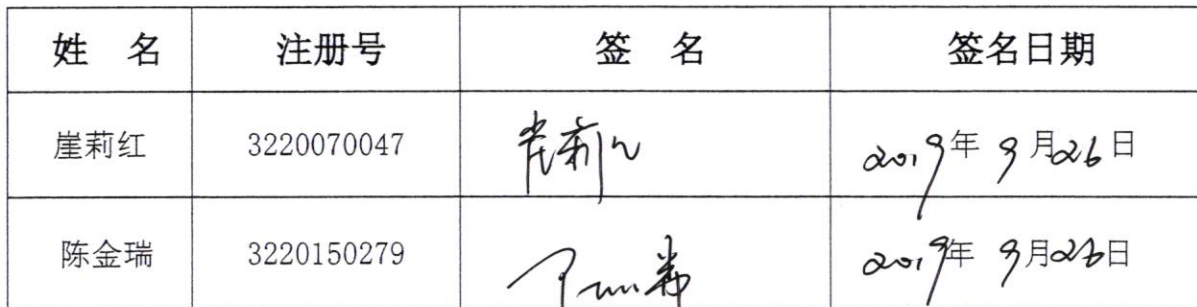 姓 名 注册号 签 名 签名日期
崖莉红 3220070047 崖莉红 2019年 9月26日
陈金瑞 3220150279 2019年 9月26日